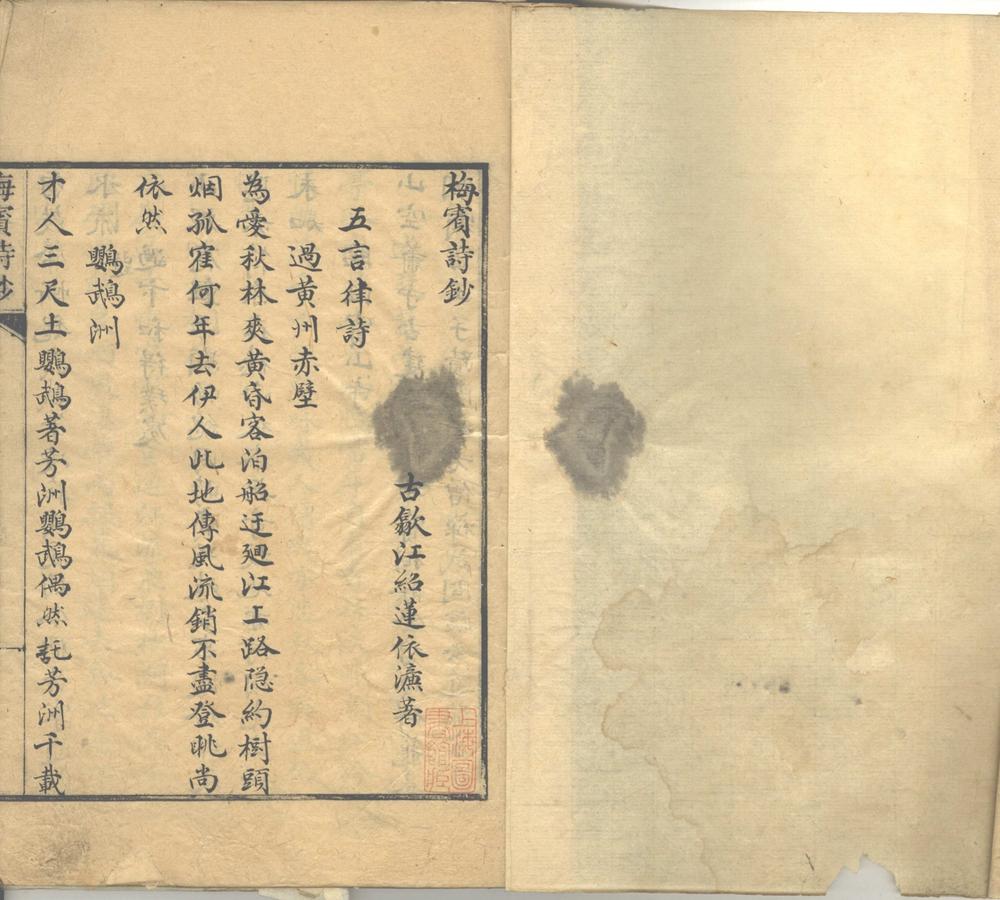 梅賓詩鈔
古歙江紹蓮依濂著
五言律詩
過黃州赤壁
為愛秋林爽黃昏客泊船迂廻江上路隐約樹頭
烟孤窂何年去伊人此地傳風流銷不盡登眺尚
依然
鸚鵡洲
才人三尺土鸚鵡著芳洲鸚鵡偶然託芳洲千載
梅賓詩鈔
上海圖書館藏